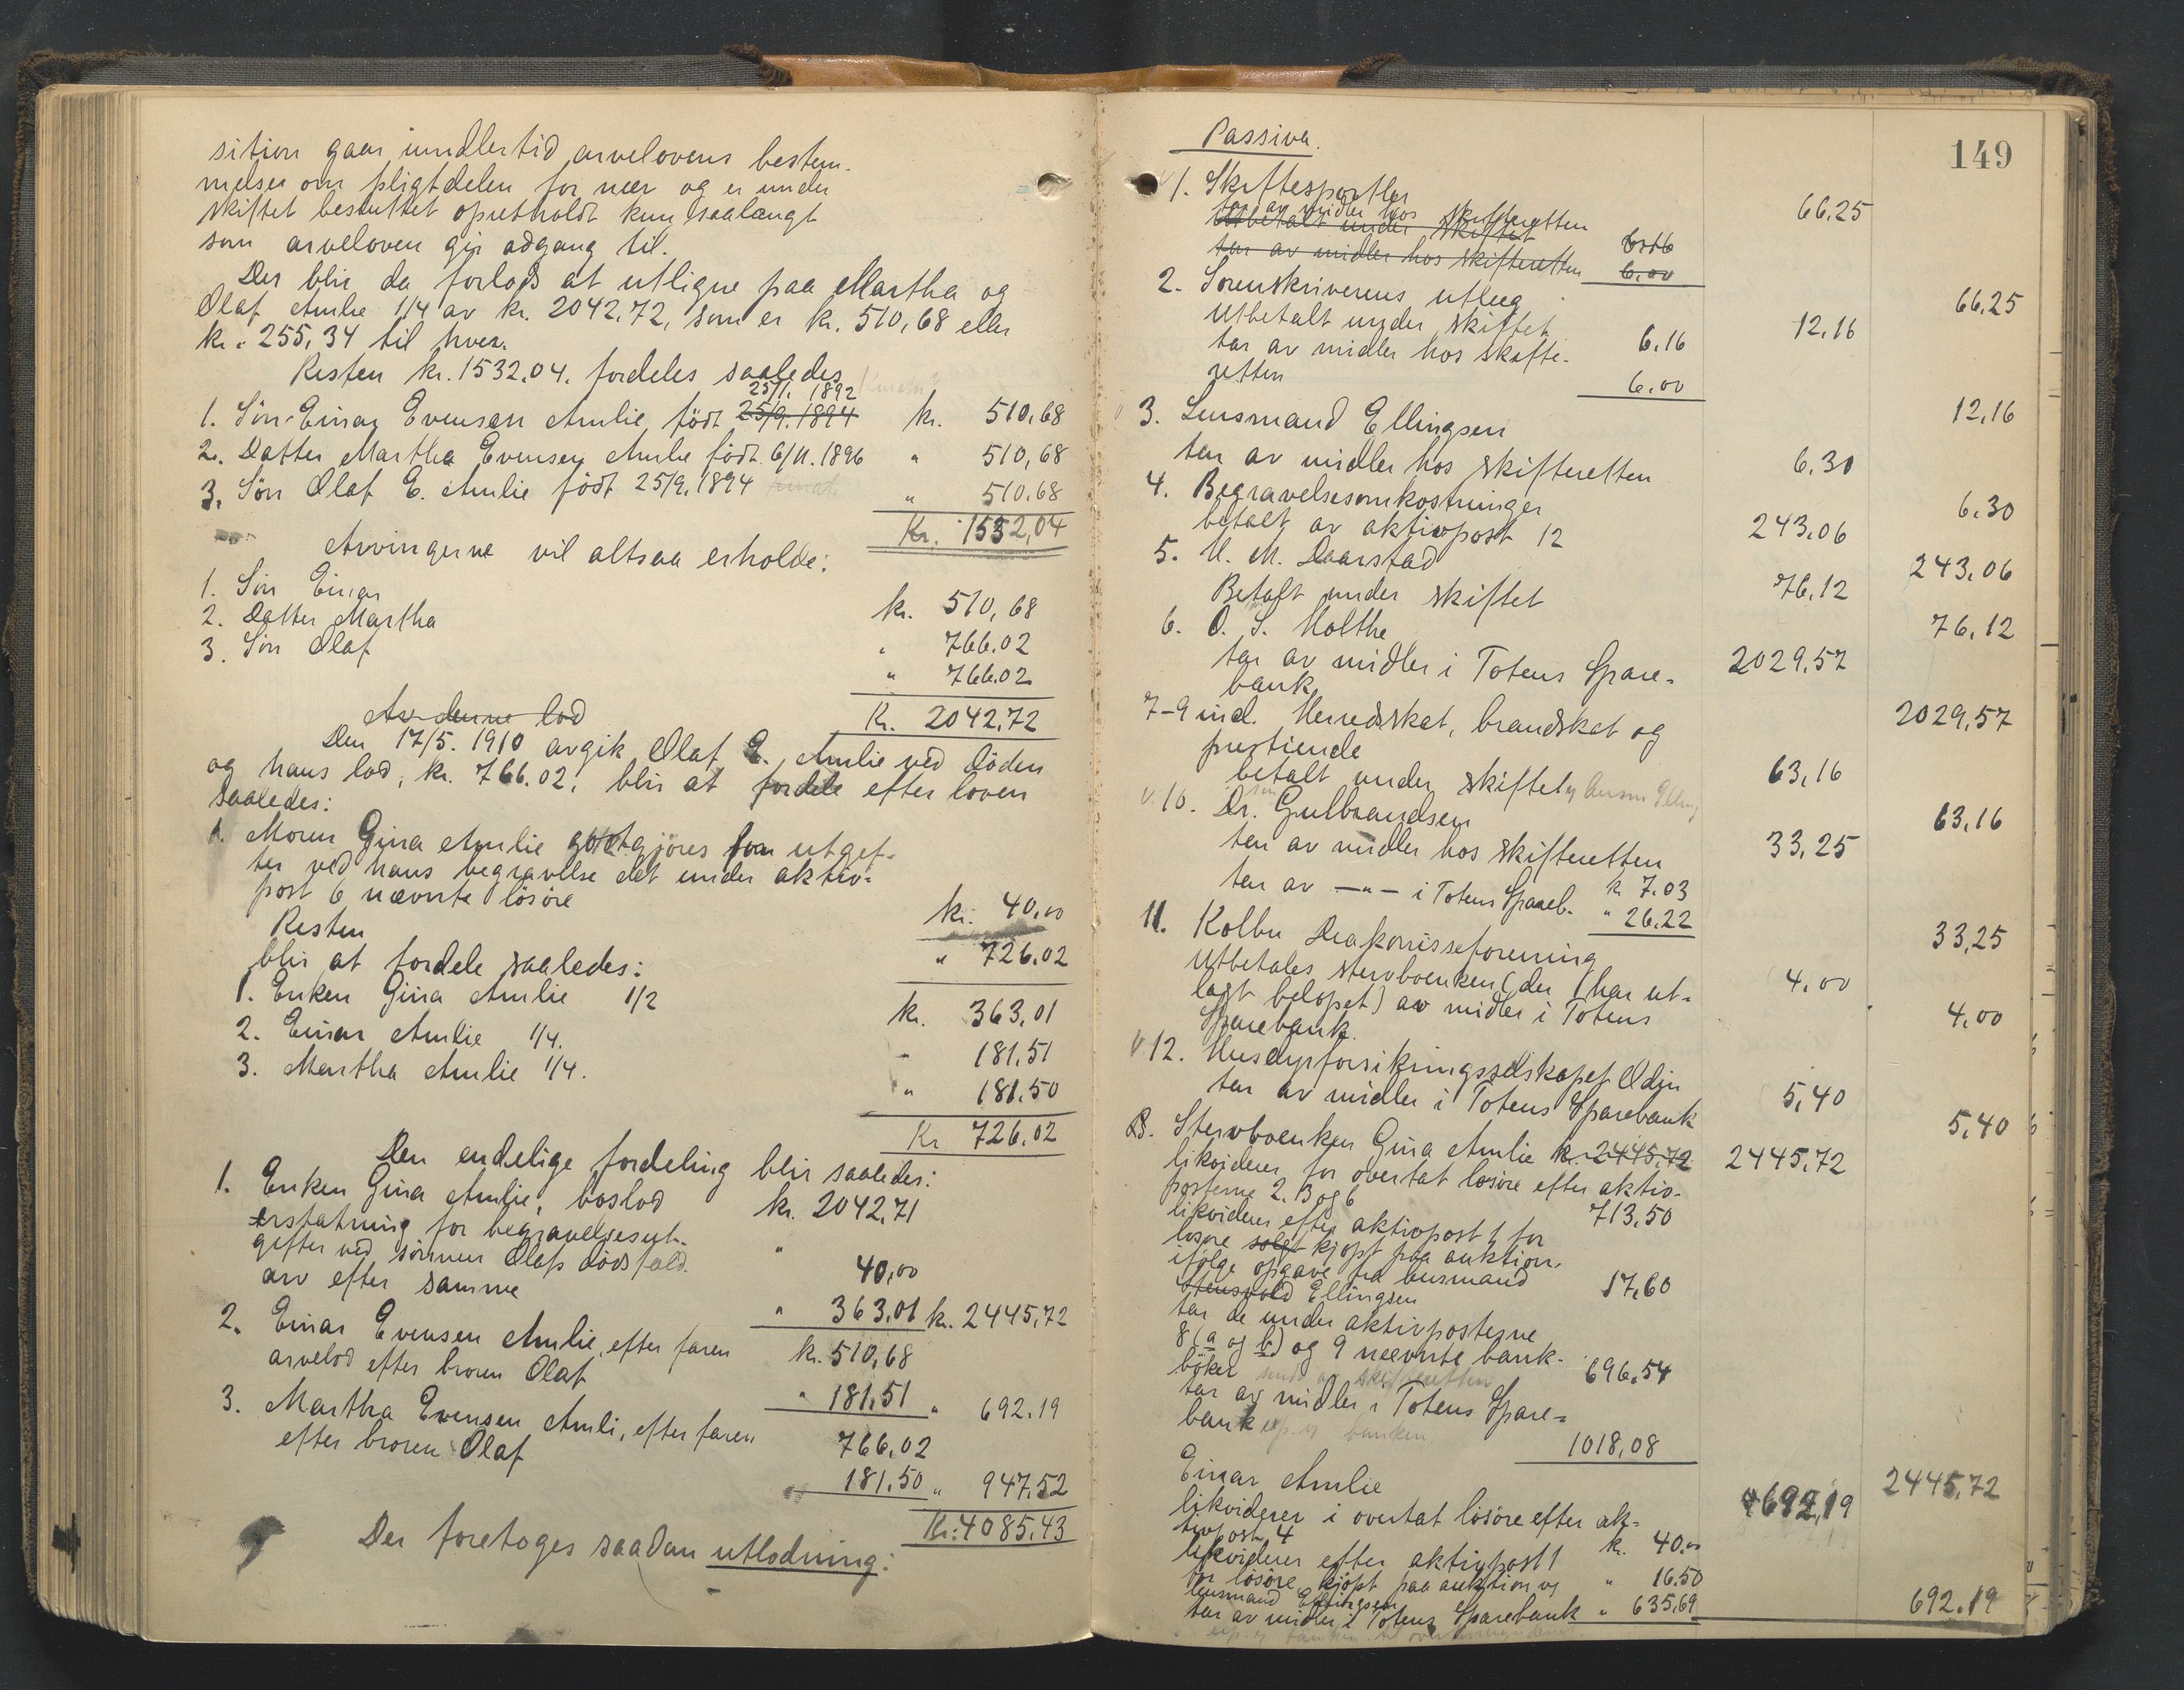 sition gaar imidlertid arvelovens bestem-
melser om pligtdelen for nær og er under
skiftet besluttet opretholdt kun saalangt
som arveloven gir adgang til.
Der blir da forlods at utligne paa Martha og
Olaf Amlie 1/4 av kr. 2042,72, som er kr. 510,68 eller
kr. 255,34 til hver.
Resten kr. 1532,04. fordeles saaledes
25/1. 1892
1. Sön Einar Evensen Amlie, födt 25/9. 1894 kr. 510,68
2. Datter Martha Evensen Amlie födt 6/11. 1896 " 510,68
3. Sön Olaf E. Amlie födt 25/9. 1894 " 510.68
Kr. 1532,04
Arvingerne vil altsaa erholde:
1. Sön Einar kr. 510,68
2. Datter Martha " 766.02
3. Sön Olaf " 766.02
Kr. 2042,72
Av denne lod
Den 17/5. 1910 avgik Olaf E. Amlie ved döden
og hans lod, kr. 766.02, blir at fordele efter loven
saaledes:
1. Moren Gina Amlie godtgjöres for utgif-
ter ved hans begravelse det under aktiv-
post 6 nævnte lösöre kr. 40,00
Resten " 726.02
blir at fordele saaledes:
1. Enken Gina Amlie 1/2 kr. 363,01
2. Einar Amlie 1/4. " 181,51
3. Martha Amlie 1/4. " 181.50
Kr 726.02
Den endelige fordeling blir saaledes:
1. Enken Gina Amlie, boslod kr. 2042,71
erstatning for begravelsesut-
gifter ved sönnen Olafs dödsfald " 40,00
arv efter samme " 363,01 kr. 2445,72
2. Einar Evensen Amlie, efter faren kr. 510,68
arvelod efter broren Olaf " 181,51 " 692.19
3. Martha Evensen Amli, efter faren 766,02
efter broren Olaf 181.50 " 947,52
Kr. 4085,43
Der foretages saadan utlodning:
149
Passiva.
1. Skiftesportler 66,25
tar av midler hos skifteretten
Utbetalt under skiftet
tar av midler hos skifteretten 6.00
66,25
2. Sorenskriverens utlæg 12,16
Utbetalt under skiftet 6.16
tar av midler hos skifte-
retten 6.00
12,16
3. Lensmand Ellingsen
tar av midler hos skifteretten 6.30
6.30
4. Begravelsesomkostninger
betalt av aktivpost 12 243,06
243,06
5. M. M. Daarstad
Betalt under skiftet 76,12
76,12
6. O. S. Holthe
tar av midler i Totens Spare- 2029,57
bank
2029,57
7-9 incl. Herredsskat, brandskat og
prestiende
betalt under skiftet 63,16
63,16
10. Dr. Gulbrandsen
tar av midler hos skifteretten 33,25
k. 7.03
tar av —"— i Totens Spareb. " 26.22
33,25
11. Kolbu Diakonisseforening
Utbetales stervboenken (der har ut- 4,00
lagt belöpet) av midler i Totens
Sparebank.
4,00
12. Husdyrforsikringsselskapet Odin
tar av midler i Totens Sparebank 5,40
5,40
B. Stervboenken Gina Amlie kr. 2445,72 2445,72
likviderer for overtat lösöre efter aktiv-
posterne 2. 3 og 6 713,50
likviderer efter aktivpost 1 for
lösöre solgt kjöpt paa auktion.
ifölge opgave fra lensmand
Ellingsen 17,60
tar de under aktivposterne
8 (a og b) og 9 nævnte bank-
böker 696,54
tar av midler i Totens Spare-
bank 1018,08
2445,72
Einar Amlie 692,19
likviderer i overtat lösöre efter ak-
tivpost 4 kr. 40,00
likviderer efter aktivpost 1
for lösöre kjöpt paa auktion v/ " 16.50
lensmand Ellingsen
tar av midler i Totens Sparebank " 635,69
692.19